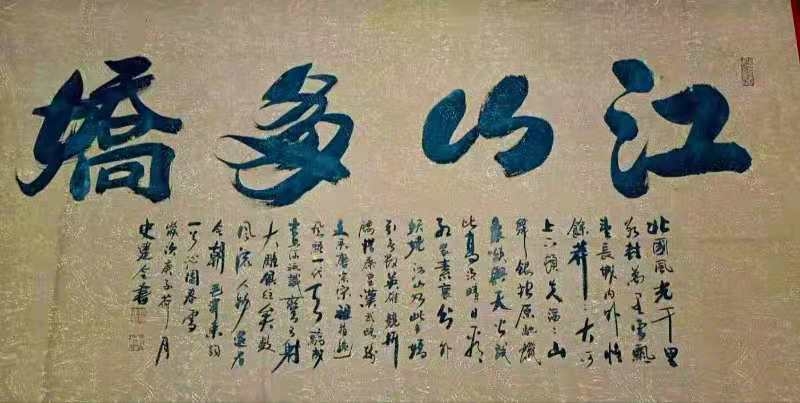 江山多嬌
北國風光千里
冰封萬里雪飄
望長城內外惟
餘莽莽大河
上下頓失滔滔山
舞銀蛇原馳蠟
象欲與天公試
比高須晴日看
紅裝素裹分外
妖嬈江山如此多嬌
引無數英雄競折
腰惜秦皇漢武略輸
文采唐宗宋祖稍遜
風騷一代天驕成
吉思汗只識彎弓射
大雕俱往矣數
風流人物還看
今朝毛澤東詞
沁園春雪
歲次庚子荷月
史書